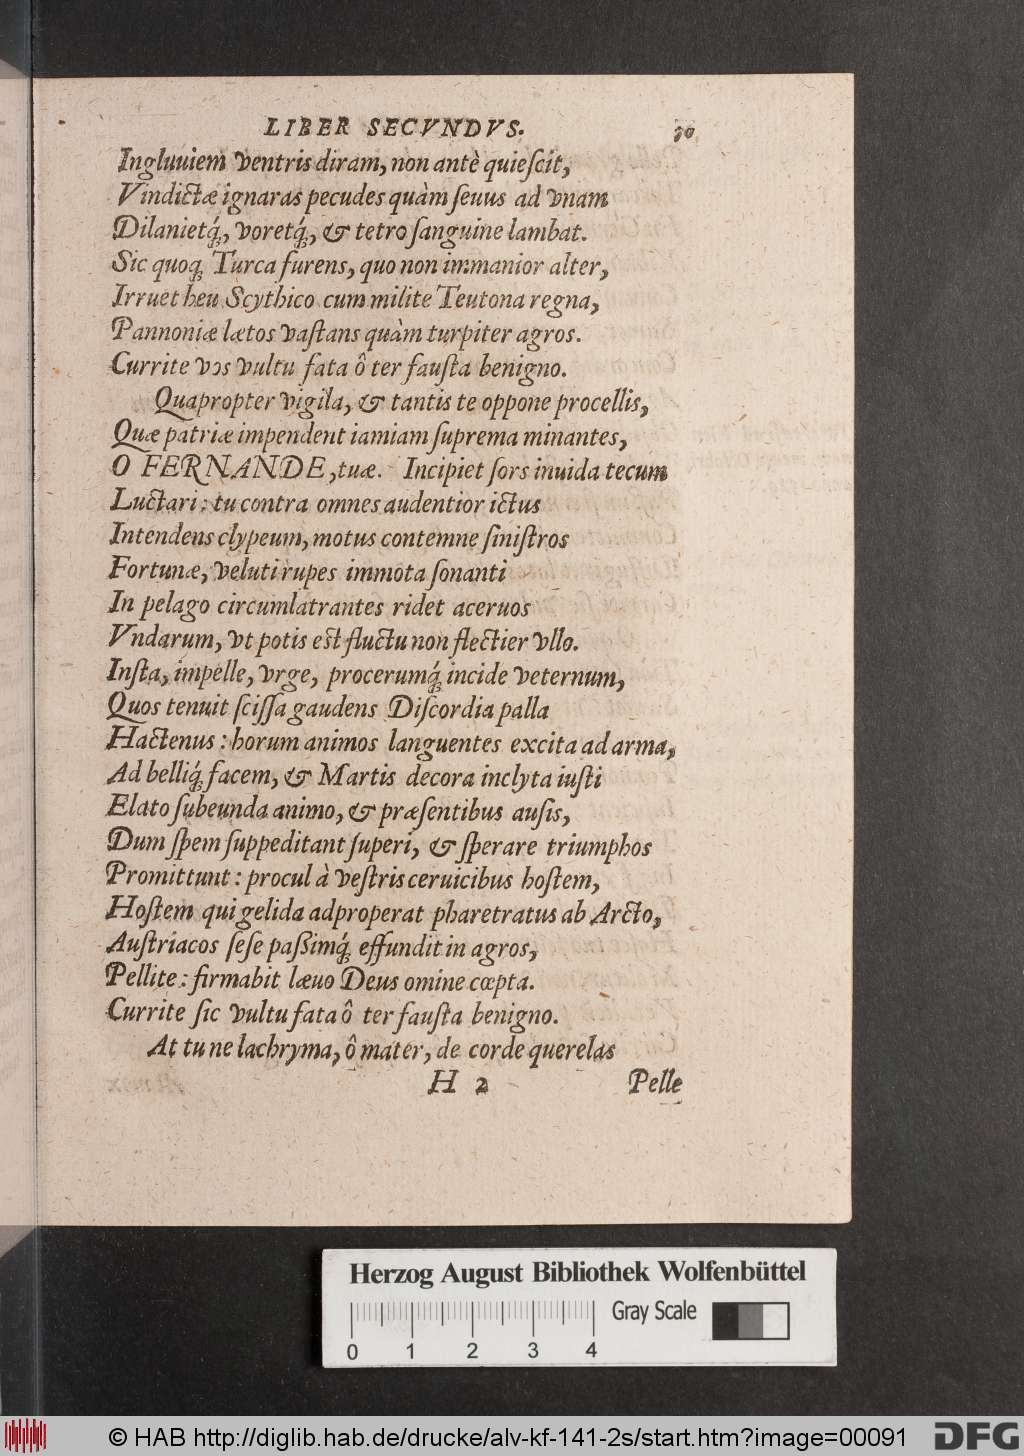 LIBER SECVNDVS. 30
Ingluuiem ventris diram, non antè quieſcit,
Vindictæ ignaras pecudes quàm ſeuus ad vnam
Dilanietq́;, voretq́;, & tetro ſanguine lambat.
Sic quoq; Turca furens, quo non immanior alter,
Irruet heu Scythico cum milite Teutona regna,
Pannoniæ lætos vaſtans quàm turpiter agros.
Currite vos vultu fata ô ter fauſta benigno.
Quapropter vigila, & tantis te oppone procellis,
Quæ patriæ impendent iamiam ſuprema minantes,
O FERNANDE, tuæ. Incipiet ſors inuida tecum
Luctari: tu contra omnes audentior ictus
Intendens clypeum, motus contemne ſiniſtros
Fortunæ, veluti rupes immota ſonanti
In pelago circumlatrantes ridet aceruos
Vndarum, vt potis est fluctu non flectier vllo.
Inſta, impelle, vrge, procerumq́; incide veternum,
Quos tenuit ſciſſa gaudens Diſcordia palla
Hactenus: horum animos languentes excita ad arma,
Ad belliq́; facem, & Martis decora inclyta iuſti
Elato ſubeunda animo, & præſentibus auſis,
Dum ſpem ſuppeditant ſuperi, & ſperare triumphos
Promittunt: procul à veſtris ceruicibus hoſtem,
Hoſtem qui gelida adproperat pharetratus ab Arcto,
Auſtriacos ſeſe paßimq́; effundit in agros,
Pellite: firmabit læuo Deus omine cœpta.
Currite ſic vultu fata ô ter fauſta benigno.
At tu ne lachryma, ô mater, de corde querelas
H 2 Pelle
Herzog August Bibliothek Wolfenbüttel
Gray Scale
0 1 2 3 4
© HAB http://diglib.hab.de/drucke/alv-kf-141-2s/start.htm?image=00091
DFG